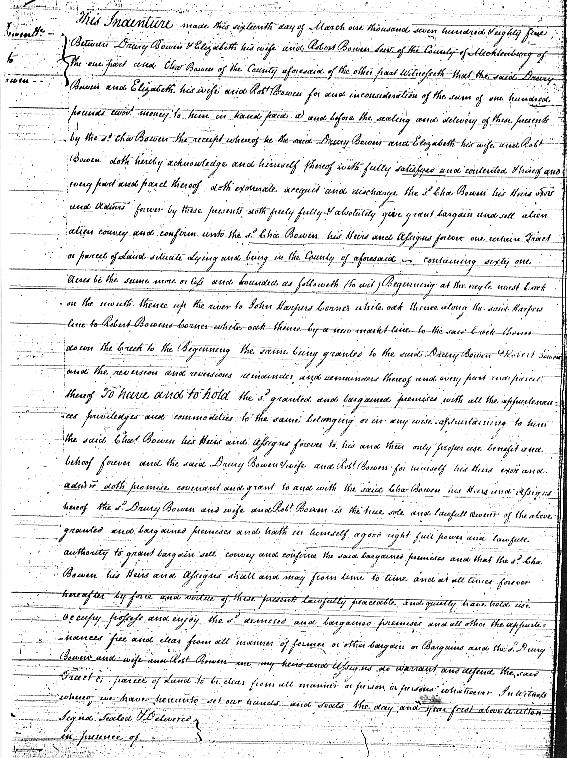 This Indenture made this sixteenth day of March one thousand seven hundred & eighty five
Between Drury Bowen & Elizabeth his wife and Robert Bowen of the County of Mecklenburg of
the one part and Cha.s Bowen of the County aforesaid of the other part Witnesseth that the said Drury
to
Bowen
Bowen and Elizabeth his wife and Rob.t Bowen for and inconsideration of the sum of one hundred
pounds money to him in hand paid at and before the sealing and delivery of these presents
by the s.d Cha Bowen the receipt whereof he the said Drury Bowen and Elizabeth his wife and Rob.t
Bowen doth hereby acknowledge and himself thereof with fully satisfyed and contented & thereof and
every part and parcel thereof doth exonerate acequit and discharge the s.d Cha Bowen his Heirs Exors
and Admrs forever by these presents doth freely fully & absolutely give grant bargain and sell alien
alien convey and confirm unto the s.d Cha. Bowen his Heirs and Assigns forever one certain Tract
or parcel of Land situate Lying and being in the County of aforesaid containing sixty one
Acres be the same more or less and bounded as followeth (to wit) Beginning at the creek
on the mouth thence up the river to John Harpers Corner white oak thence along the said Harpers
line to Robert Bowens Corner white oak thence by a new markt line to the said Creek thence
down the Creek to the Beginning the same being granted to the said Drury Bowen & Robert Bowen
and the reversion and reversions remainder and remainders thereof and every part and parcel
thereof To have and to hold the s.d granted and bargained premises with all the appurtenan-
ces priviledges and commodities to the same belonging or in any wise appertaining to him
the said Chas. Bowen his Heirs and Assigns forever to his and their only proper use benefit and
behoof forever and the said Drury Bowen & wife and Rob.t Bowen for himself his Heirs exor and
admrs doth promise covenant and grant to and with the said Cha Bowen his Heirs and Assigns
hereof the s.d Drury Bowen and wife and Rob.t Bowen is the true sole and lawfull owner of the above
granted and bargained premises and hath in himself a good right full power and lawfull
authority to grant bargain sell convey and confirm the said bargained premises and that the s.d Cha.
Bowen his Heirs and Assigns shall and may from time to time and at all times forever
hereafter by force and virtue of these present lawfully peaceable and quietly have hold use
occupy possess and enjoy the s.d demised and bargained premises and all other the appurte-
nances free and clear from all manner of former or other bargain or Bargains and the s.d Drury
Bowen and wife and Rob.t Bowen are my heirs and Assigns do warrant and defend the said
Tract or parcel of Land to be clear from all manner or person or persons whatsoever In witness
whereof we have hereunto set our hands and seals the day and year first above written
Signd Sealed & Delivered
in presence of